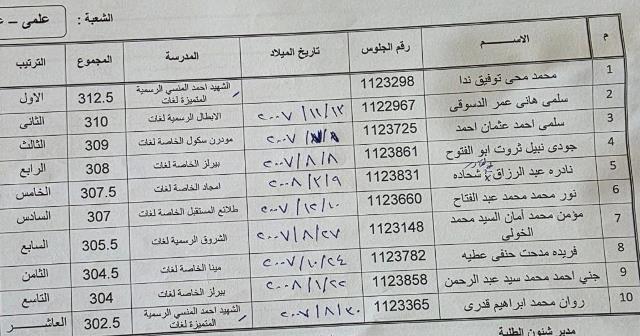 الشعبة : علمي –
م الاســـم رقم الجلوس تاريخ الميلاد المدرسة المجموع الترتيب
1 محمد محى توفيق ندا 1123298 الشهيد احمد المنسي الرسمية المتميزة لغات 312.5 الاول
2 سلمى هانى عمر الدسوقى 1122967 ٢٠٠٧/١١/١٣ الابطال الرسمية لغات 310 الثانى
3 سلمى احمد عثمان احمد 1123725 مودرن سكول الخاصة لغات 309 الثالث
4 جودى نبيل ثروت ابو الفتوح 1123861 ٢٠٠٧/٨/٨ بيرلز الخاصة لغات 308 الرابع
5 نادره عبد الرزاق شحاده 1123831 ٢٠٠٨/٢/٩ امجاد الخاصة لغات 307.5 الخامس
6 نور محمد محمد عبد الفتاح 1123660 ٢٠٠٧/١٢/١٠ طلائع المستقبل الخاصة لغات 307 السادس
7 مؤمن محمد أمان السيد محمد الخولى 1123148 ٢٠٠٧/٨/٢٧ الشروق الرسمية لغات 305.5 السابع
8 فريده مدحت حنفى عطيه 1123782 ٢٠٠٧/١٠/٢٤ مينا الخاصة لغات 304.5 الثامن
9 جني احمد محمد سيد عبد الرحمن 1123858 ٢٠٠٨/١/٢٢ بيرلز الخاصة لغات 304 التاسع
10 روان محمد ابراهيم قدرى 1123365 ٢٠٠٧/٨/٢٠ الشهيد احمد المنسي الرسمية المتميزة لغات 302.5 العاشر
مدير شئون الطلبة